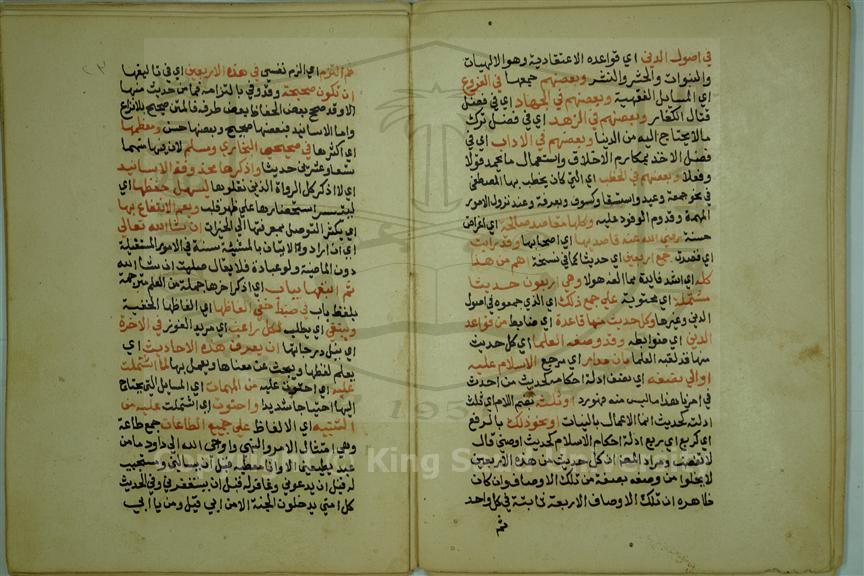 في اصول الدين اي قواعده الاعتقادية وهو الالهيات
والنبوات والحشر والنشر وبعضهم جمعها في الفروع
اي المسايل الفقهية وبعضهم في الجهاد اي في فضل
قتال الكفار وبعضهم في الزهد اي في فضل ترك
مالا يحتاج اليه من الدنيا وبعضهم في الاداب اي في
فضل الاخذ بمكارم الاخلاق واستعمال ما يحمد قولا
وفعلا وبعضهم في الخطب اي التي كان يخطب بها المصطفى
في نحو جمعة وعيد واستسقا وكسوف وبعرفة وعند نزول الامور
المهمة وقدوم الوفود عليه وكلها مقاصد صالحة اي اغراض
حسنة رضي الله عنه قاصديها اي اصحابها وقد رايت
اي قصدت جمع اربعين اي حديثا كما في نسخة اهم من هذا
كله اي اشد فايدة مما الفه هولا وهي اربعون حديثا
مشتملة اي محتوية على جميع ذلك اي الذي جمعوه في اصول
الدين وغيرها وكل حديث منها قاعدة اي ضابط من قواعد
الدين اي ضوابطه وقد وصفه العلما اي كل حديث
منها قد لقبه العلما بان مدار اي مرجع الاسلام عليه
اوالى نصفه اي نصف ادلة احكامه كحديث من احدث
في امرنا هذا ما ليس منه فهو رد او ثلثه بضم اللام اي ثلث
ادلته كحديث انما الاعمال بالنيات او نحو ذلك بالرفع
اي كربع اي ربع ادلة احكام الاسلام كحديث اوصني قال
لا تغضب ومراد المص ان كل حديث من هذه الاربعين
لا يخلوا من وصفه بصفة من تلك الاوصاف وان كان
ظاهره ان تلك الاوصاف الاربعة ثابتة في كل واحد
ثم
ثم التزم اي الزم نفسي في هذه الاربعين اي في تاليفها
ان تكون صحيحة وقد وفى بالتزامه فما من حديث منها
الا وقد صحح بعض الحفاظ بعض طرقه فالمتن صحيح بلا نزاع
واما الاسانيد فبعضها صحيح وبعضها حسن ومعظمها
اي اكثرها في صحيحي البخاري ومسلم لان فيهما
تسعا وعشرين حديثا واذكرها محذوفة الاسانيد
اي لا اذكر كل الرواة الذين نقلوها ليسهل حفظها اي
ليتيسر استحضارها على ظهر قلب ويعم الانتفاع بها
اي يكثر التوصل بمعرفتها الى الخيرات ان شا الله تعالى
اي ان اراد والاتيان بالمشيئة سنة في الامور المستقبلة
دون الماضية ولو عبادة فلا يقال صليت ان شا الله
ثم اتبعها بباب اي اذكر اخرها جملة من العلم مترجمة
بلفظ باب في ضبط خفي الفاظها اي الفاظها الخفية
وينبغي اي يطلب لكل راغب اي مريد الفوز في الاخرة
اي بنيل درجاتها ان يعرف هذه الاحاديث اي
يعلم لفظها ويبحث عن معناها ويعمل بها لما اشتملت
عليه اي احتوت عليه من المهمات اي المسايل التي يحتاج
اليها احتياجا شديدا واحتوت اي اشتملت عليه من
التنبيه اي الالفاظ على جميع الطاعات جمع طاعة
وهي امتثال الامر والنهي واوحى الله الى داود ما من
عبد يطيعني الا وانا معطيه قبل ان يسالني ومستجيب
له قبل ان يدعوني وغافر له قبل ان يستغفرني وفي الحديث
كل امتي يدخلون الجنة الا من ابى قيل ومن يا ابي